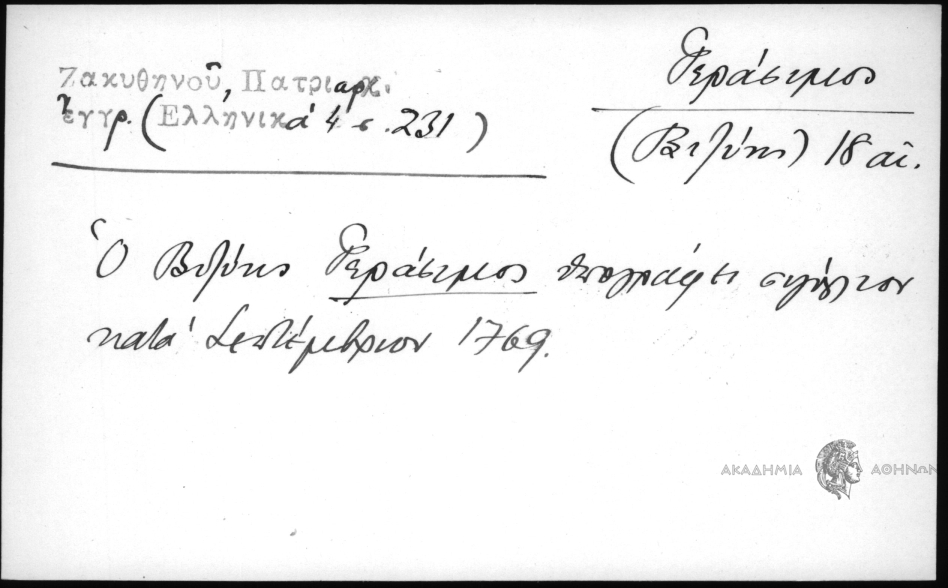 Ζακυθηνοῦ, Πατριαρχ.
ἔγγρ. (Ἑλληνικά 4 σ. 231)
Γεράσιμος
(Βιζύης) 18 αἰ.
Ὁ Βιζύης Γεράσιμος ὑπογράφει σιγίλλιον
κατά Σεπτέμβριον 1769.
ΑΚΑΔΗΜΙΑ ΑΘΗΝΩΝ